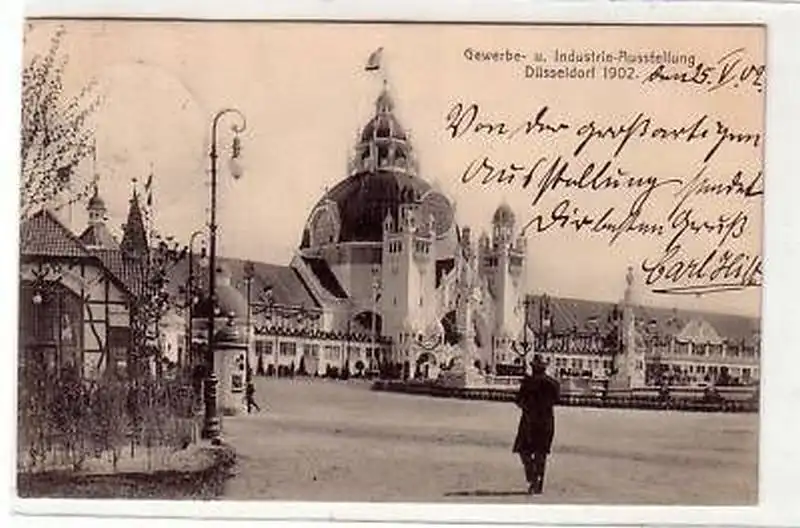 Gewerbe- u. Industrie-Ausstellung
Düsseldorf 1902.
den 25. V. 02.
Von der großartigen
Ausstellung sendet
Dir besten Gruß
Carl